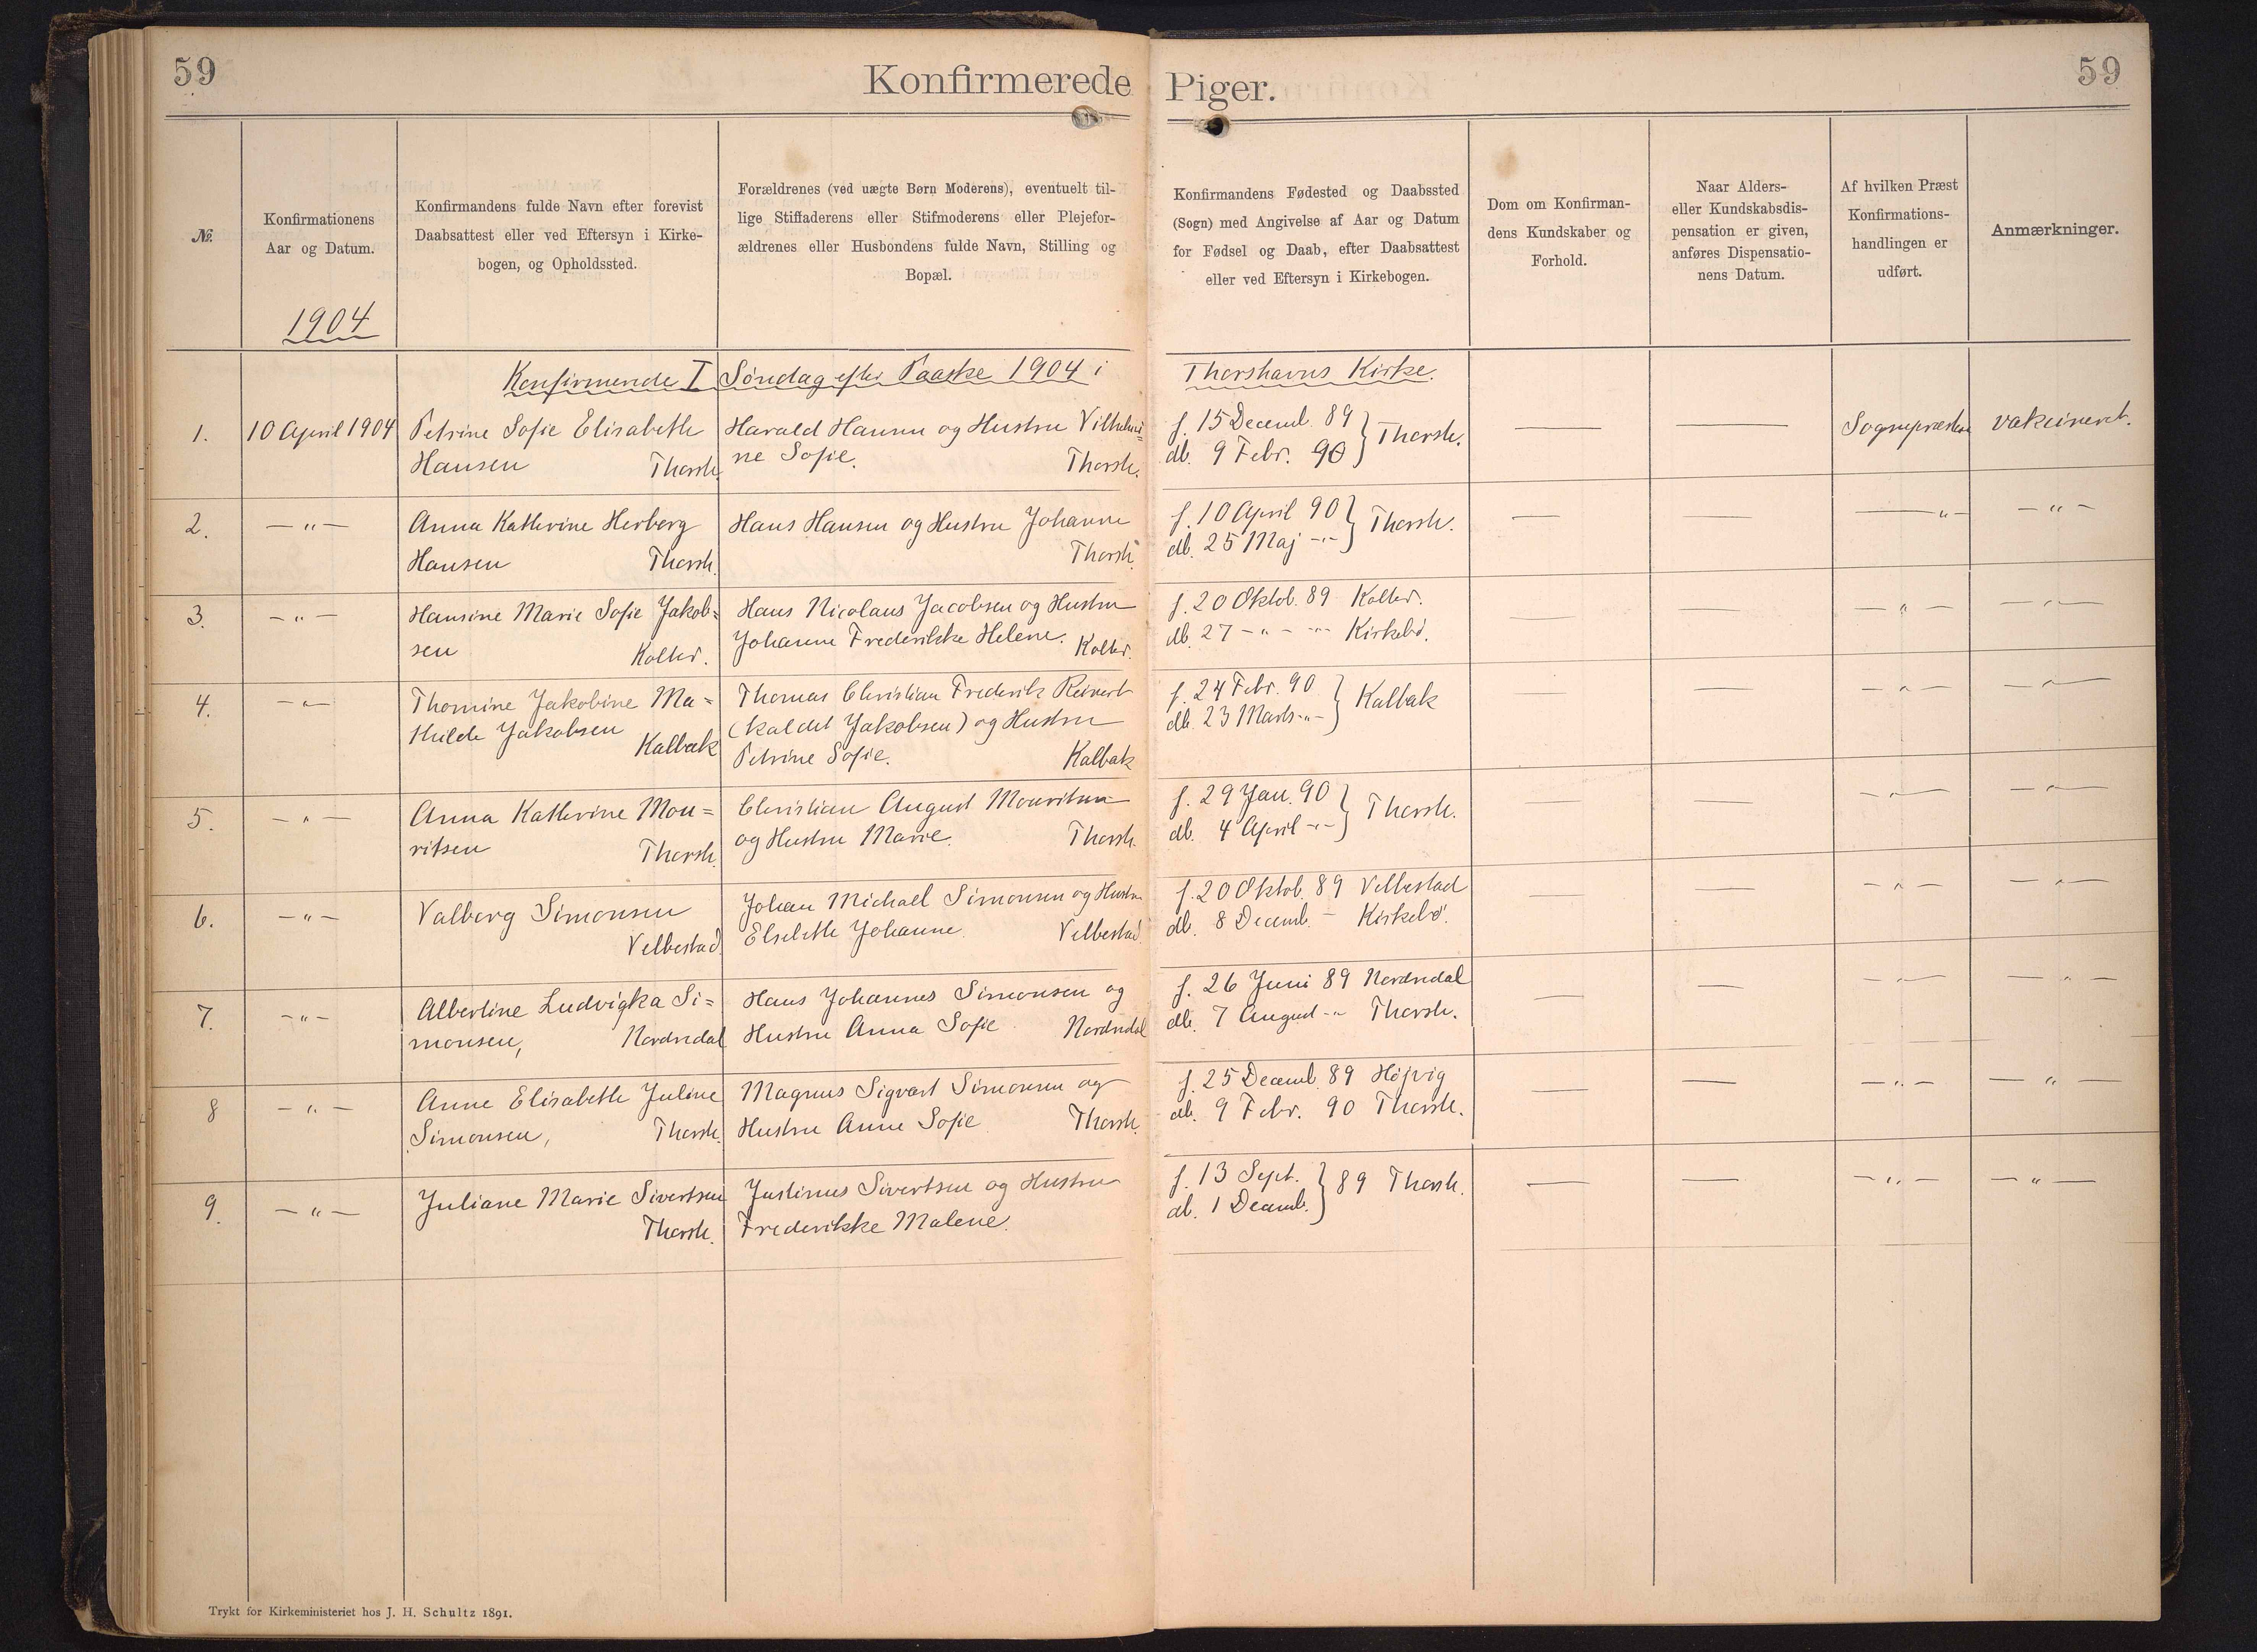 59
Konfirmerede Piger.
59
№.
Konfirmationens
Aar og Datum.
1904
Konfirmandens fulde Navn efter forevist
Daabsattest eller ved Eftersyn i Kirke-
bogen, og Opholdssted.
Forældrenes (ved uægte Børn Moderens), eventuelt til-
lige Stiffaderens eller Stifmoderens eller Plejefor-
ældrenes eller Husbondens fulde Navn, Stilling og
Bopæl.
Konfirmandens Fødested og Daabssted
(Sogn) med Angivelse af Aar og Datum
for Fødsel og Daab, efter Daabsattest
eller ved Eftersyn i Kirkebogen.
Dom om Konfirman-
dens Kundskaber og
Forhold.
Naar Alders-
eller Kundskabsdis-
pensation er given,
anføres Dispensatio-
nens Datum.
Af hvilken Præst
Konfirmations-
handlingen er
udført.
Anmærkninger.
Konfirmerede I Søndag efter Paaske 1904 i Thorshavns Kirke.
1.
10 April 1904
Petrine Sofie Elisabeth
Hansen Thorsh.
Harald Hansen og Hustru Vilhelmi=
ne Sofie. Thorsh.
f. 15 Decemb. 89
db. 9 Febr. 90 } Thorsh.
—
—
Sognepræsten
vakcineret.
2.
— " —
Anna Kathrine Herborg
Hansen Thorsh.
Hans Hansen og Hustru Johanne
Thorsh.
f. 10 April 90
db. 25 Maj -"- } Thorsh.
—
—
— " —
— " —
3.
— " —
Hansine Marie Sofie Jakob=
sen Kolter.
Hans Nicolaus Jacobsen og Hustru
Johanne Frederikke Helene. Kolter.
f. 20 Oktob. 89 Kolter.
db. 27 - " - -"- Kirkebø.
—
—
— " —
— " —
4.
— " —
Thomine Jakobine Ma=
thilde Jakobsen Kalbak
Thomas Christian Frederik Reinert
(kaldet Jakobsen) og Hustru
Petrine Sofie. Kalbak
f. 24 Febr. 90
db. 23 Marts -"- } Kalbak
—
—
— " —
— " —
5.
— " —
Anna Kathrine Mou=
ritsen Thorsh.
Christian August Mouritsen
og Hustru Marie. Thorsh.
f. 29 Jan. 90
db. 4 April -"- } Thorsh.
—
—
— " —
— " —
6.
— " —
Valborg Simonsen
Velbestad
Johan Michael Simonsen og Hustru
Elsebeth Johanne. Velbestad.
f. 20 Oktob. 89 Velbestad
db. 8 Decemb. - Kirkebø.
—
—
— " —
— " —
7.
— " —
Albertine Ludvigka Si=
monsen, Nordredal
Hans Johannes Simonsen og
Hustru Anna Sofie Nordredal
f. 26 Juni 89 Nordredal
db. 7 August -" Thorsh.
—
—
— " —
— " —
8
— " —
Anne Elisabeth Juline
Simonsen, Thorsh.
Magnus Sigvart Simonsen og
Hustru Anne Sofie Thorsh.
f. 25 Decemb. 89 Højvig
db. 9 Febr. 90 Thorsh.
—
—
— " —
— " —
9.
— " —
Juliane Marie Sivertsen
Thorsh.
Justinus Sivertsen og Hustru
Frederikke Malene.
f. 13 Sept.
db. 1 Decemb. } 89 Thorsh.
—
—
— " —
— " —
Trykt for Kirkeministeriet hos J. H. Schultz 1891.